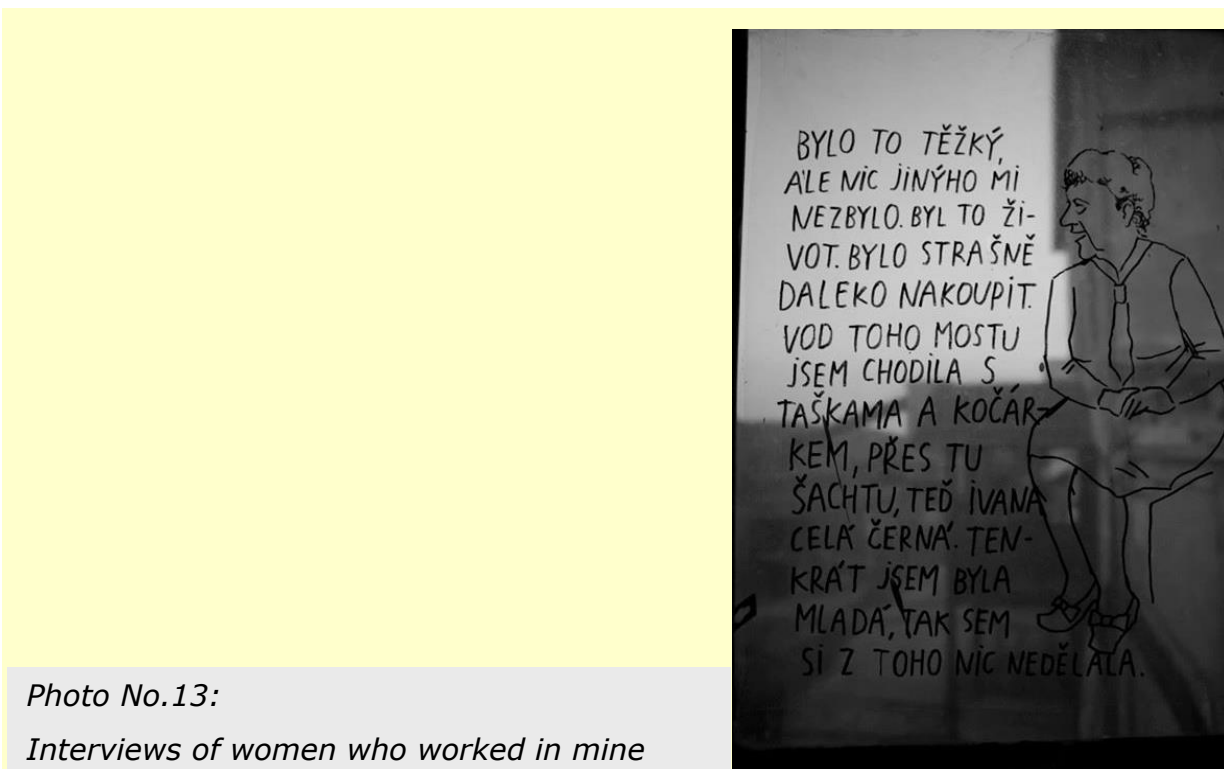 BYLO TO TĚŽKÝ,
ALE NIC JINÝHO MI
NEZBYLO. BYL TO ŽI-
VOT. BYLO STRAŠNĚ
DALEKO NAKOUPIT.
VOD TOHO MOSTU
JSEM CHODILA S
TAŠKAMA A KOČÁR-
KEM, PŘES TU
ŠACHTU, TEĎ IVANA
CELÁ ČERNÁ. TEN-
KRÁT JSEM BYLA
MLADÁ, TAK SEM
SI Z TOHO NIC NEDĚLALA.
Photo No.13:
Interviews of women who worked in mine